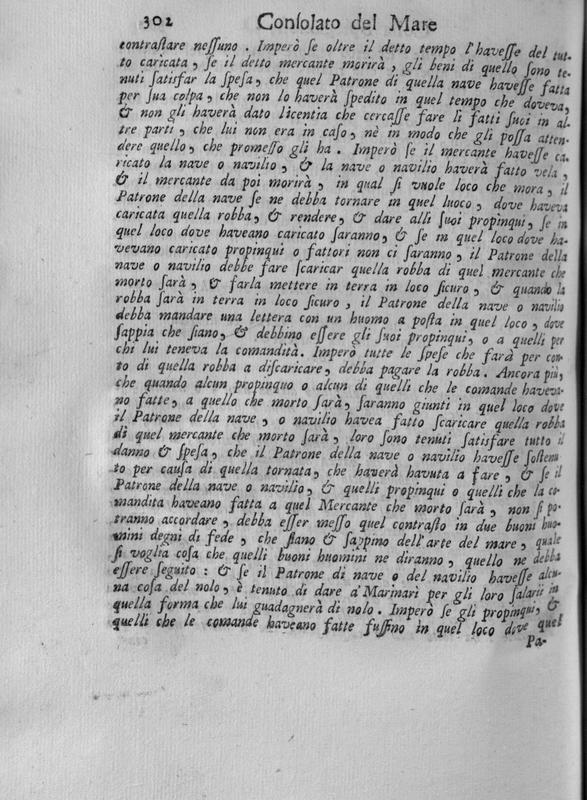 302 Consolato del Mare
contrastare nessuno. Imperò se oltre il detto tempo l'havesse del tut-
to caricata, se il detto mercante morirà, gli beni di quello sono te-
nuti satisfar la spesa, che quel Patrone di quella nave havesse fatta
per sua colpa, che non lo haverà spedito in quel tempo che doveva,
& non gli haverà dato licentia che cercasse fare li fatti suoi in al-
tre parti, che lui non era in caso, nè in modo che gli possa atten-
dere quello, che promesso gli ha. Imperò se il mercante havesse ca-
ricato la nave o navilio, & la nave o navilio haverà fatto vela,
& il mercante da poi morirà, in qual si vuole loco che mora, il
Patrone della nave se ne debba tornare in quel luoco, dove haveva
caricata quella robba, & rendere, & dare alli suoi propinqui, se in
quel loco dove haveano caricato saranno, & se in quel loco dove ha-
vevano caricato propinqui o fattori non ci saranno, il Patrone della
nave o navilio debbe fare scaricar quella robba di quel mercante che
morto sarà, & farla mettere in terra in loco sicuro, & quando la
robba sarà in terra in loco sicuro, il Patrone della nave o navilio
debba mandare una lettera con un huomo a posta in quel loco, dove
sappia che siano, & debbino essere gli suoi propinqui, o a quelli per
chi lui teneva la comandità. Imperò tutte le spese che farà per con-
to di quella robba a discaricare, debba pagare la robba. Ancora più,
che quando alcun propinquo o alcun di quelli che le comande haveva-
no fatte, a quello che morto sarà, saranno giunti in quel loco dove
il Patrone della nave, o navilio havea fatto scaricare quella robba
di quel mercante che morto sarà, loro sono tenuti satisfare tutto il
danno & spesa, che il Patrone della nave o navilio havesse sostenu-
to per causa di quella tornata, che haverà havuta a fare, & se il
Patrone della nave o navilio, & quelli propinqui o quelli che la co-
mandita haveano fatta a quel Mercante che morto sarà, non si po-
tranno accordare, debba esser messo quel contrasto in due buoni huo-
mini degni di fede, che siano & sappino dell'arte del mare, quale
si voglia cosa che quelli buoni huomini ne diranno, quello ne debba
essere seguito: & se il Patrone di nave o del navilio havesse alcu-
na cosa del nolo, è tenuto di dare a' Marinari per gli loro salarii in
quella forma che lui guadagnerà di nolo. Imperò se gli propinqui, &
quelli che le comande haveano fatte fussino in quel loco dove quel
Pa-